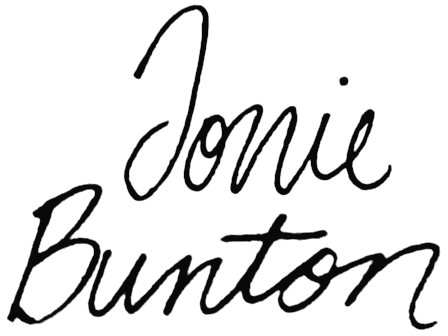 Jonie
Bunton